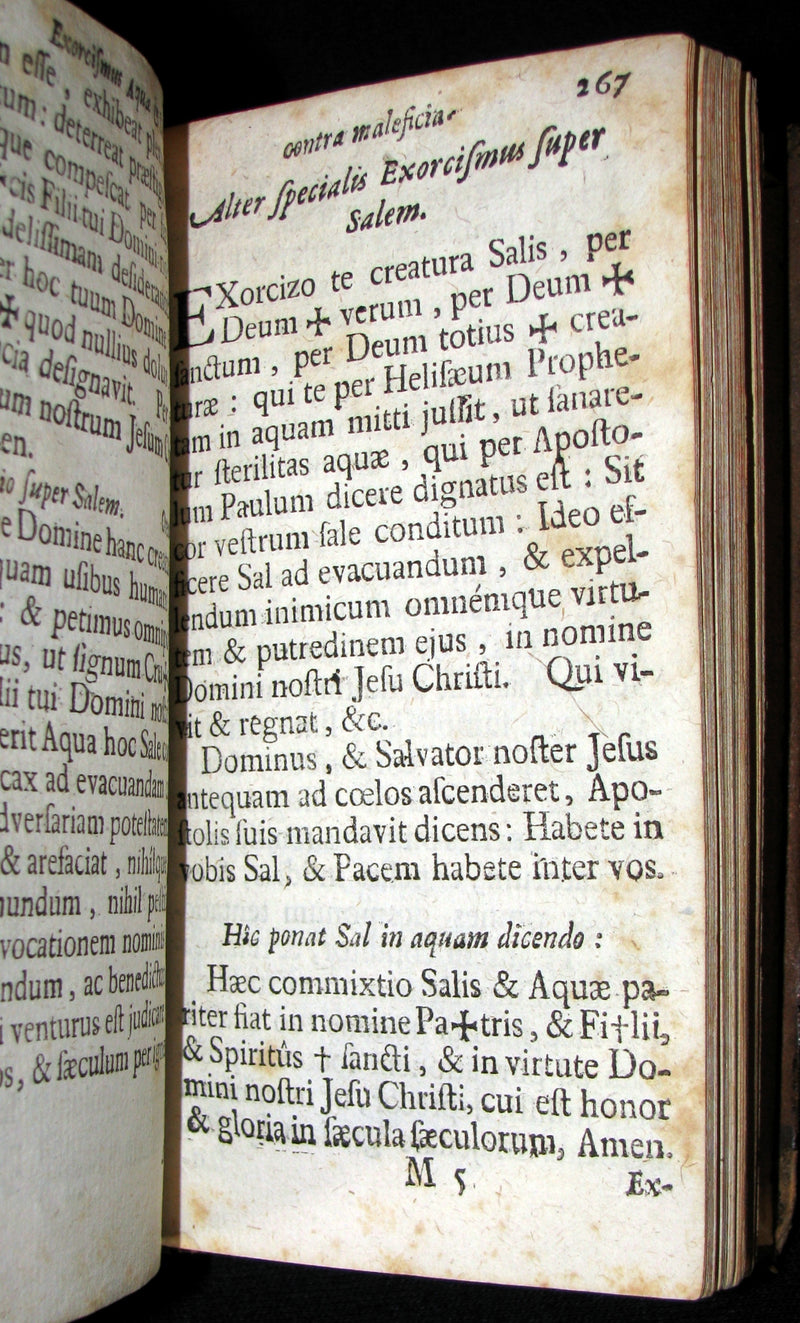 Exorciſmus Aquæ
n eſſe, exhibeat
um: deterreat
que compeſcat per
cis Filii tui Domini
deliſſimam
r hoc tuum Domine
✠ quod nullius
cia deſignavit.
um noſtrum Jeſum
en.
ſuper Salem.
e Domine hanc
quam uſibus
: & petimus
us, ut ſignum
lii tui Domini
erit Aqua hoc Sale
cax ad evacuandam
dverſariam
& arefaciat,
mundum, nihil
vocationem
ndum, ac
i venturus eſt
os, & ſæculum per
267
contra maleficia.
Alter ſpecialis Exorciſmus ſuper
Salem.
EXorcizo te creatura Salis, per
Deum ✠ verum, per Deum ✠
ſanctum, per Deum totius ✠ crea-
turæ: qui te per Heliſæum Prophe-
tam in aquam mitti juſſit, ut ſanare-
tur ſterilitas aquæ, qui per Apoſto-
lum Paulum dicere dignatus eſt: Sit
cor veſtrum ſale conditum: Ideo ef-
ficere Sal ad evacuandum, & expel-
lendum inimicum omnémque virtu-
tem & putredinem ejus, in nomine
Domini noſtri Jeſu Chriſti. Qui vi-
vit & regnat, &c.
Dominus, & Salvator noſter Jeſus
antequam ad cœlos aſcenderet, Apo-
ſtolis ſuis mandavit dicens: Habete in
vobis Sal, & Pacem habete inter vos.
Hic ponat Sal in aquam dicendo:
Hæc commixtio Salis & Aquæ pa-
riter fiat in nomine Pa✠tris, & Fi†lii,
& Spiritûs † ſancti, & in virtute Do-
mini noſtri Jeſu Chriſti, cui eſt honor
& gloria in ſæcula ſæculorum, Amen.
M 5
Ex-